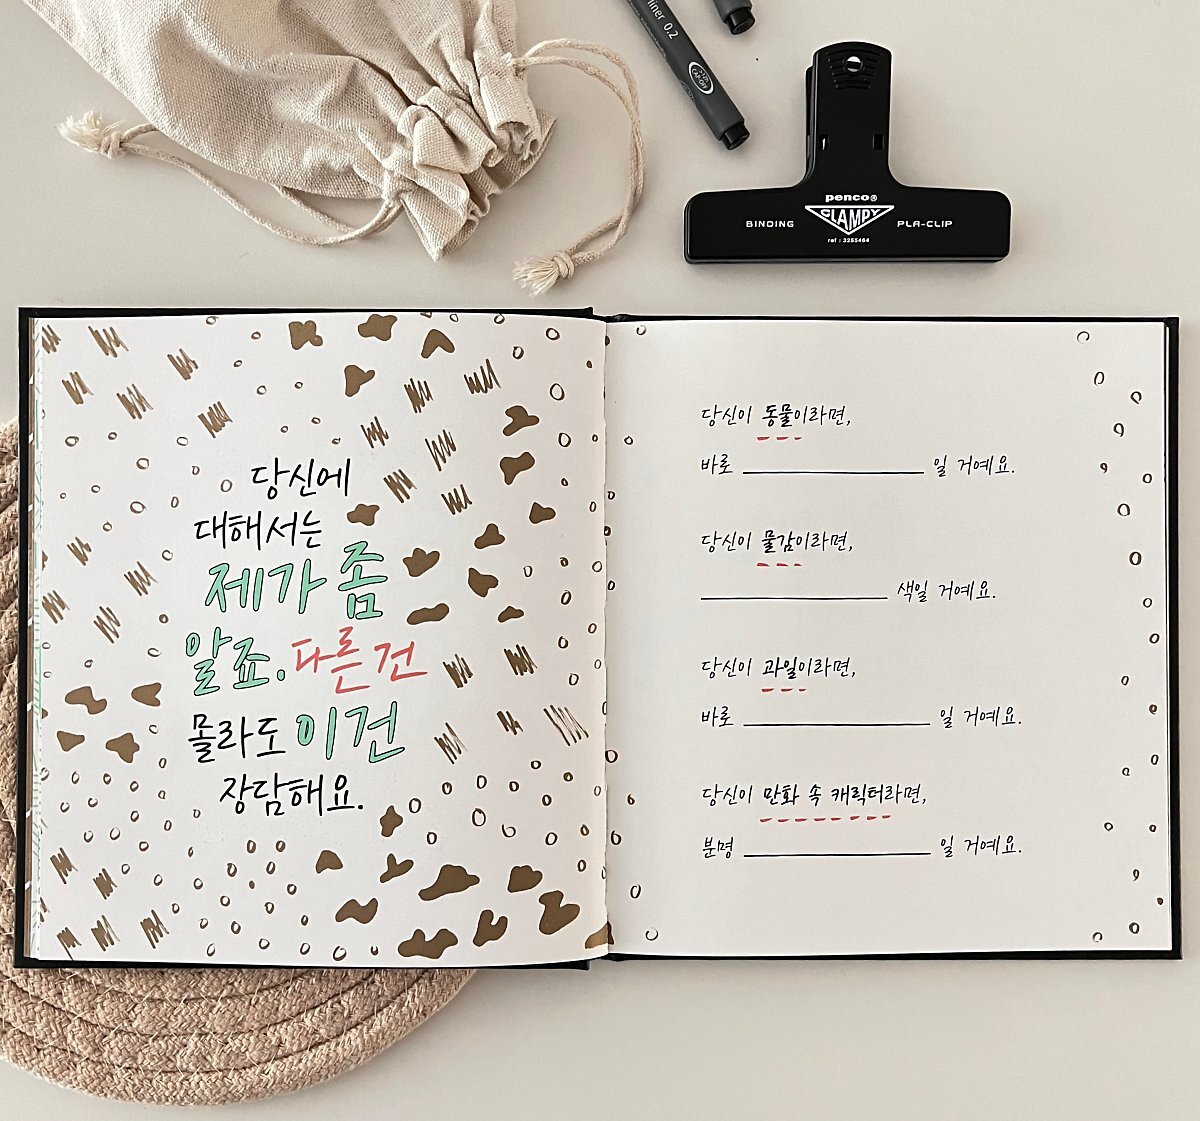 liner 0.2
CAP-OFF
penco®
CLAMPY
BINDING
PLA-CLIP
ref : 3255464
당신에
대해서는
제가 좀
알죠. 다른 건
몰라도 이건
장담해요.
당신이 동물이라면,
바로 ____________ 일 거예요.
당신이 물감이라면,
____________ 색일 거예요.
당신이 과일이라면,
바로 ____________ 일 거예요.
당신이 만화 속 캐릭터라면,
분명 ____________ 일 거예요.